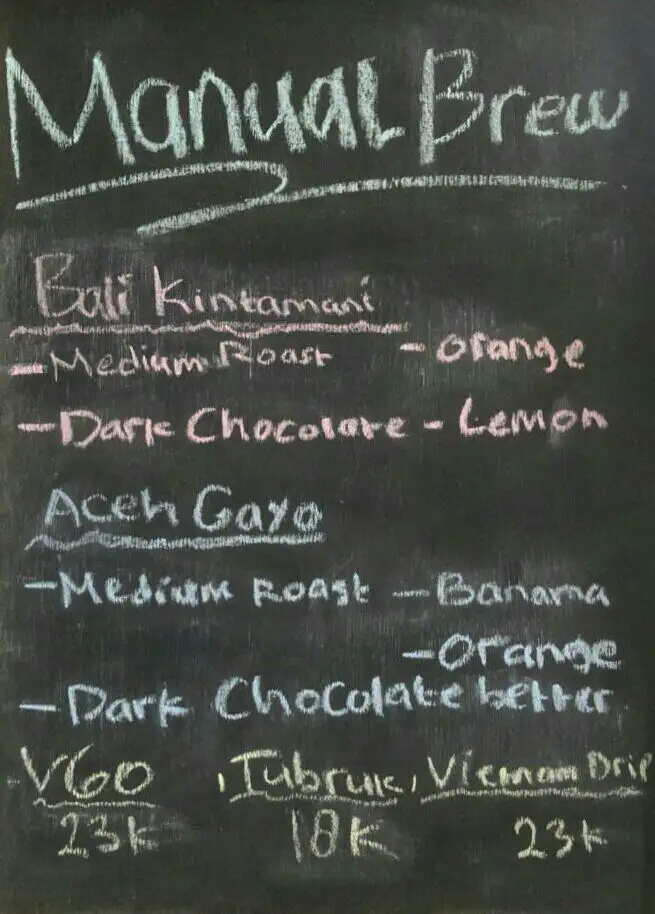 Manual Brew
Bali Kintamani
- Medium Roast - Orange
- Dark Chocolate - Lemon
Aceh Gayo
- Medium Roast - Banana
- Orange
- Dark Chocolate better
- V60 , Tubruk , Vietnam Drip
23k 18k 23k